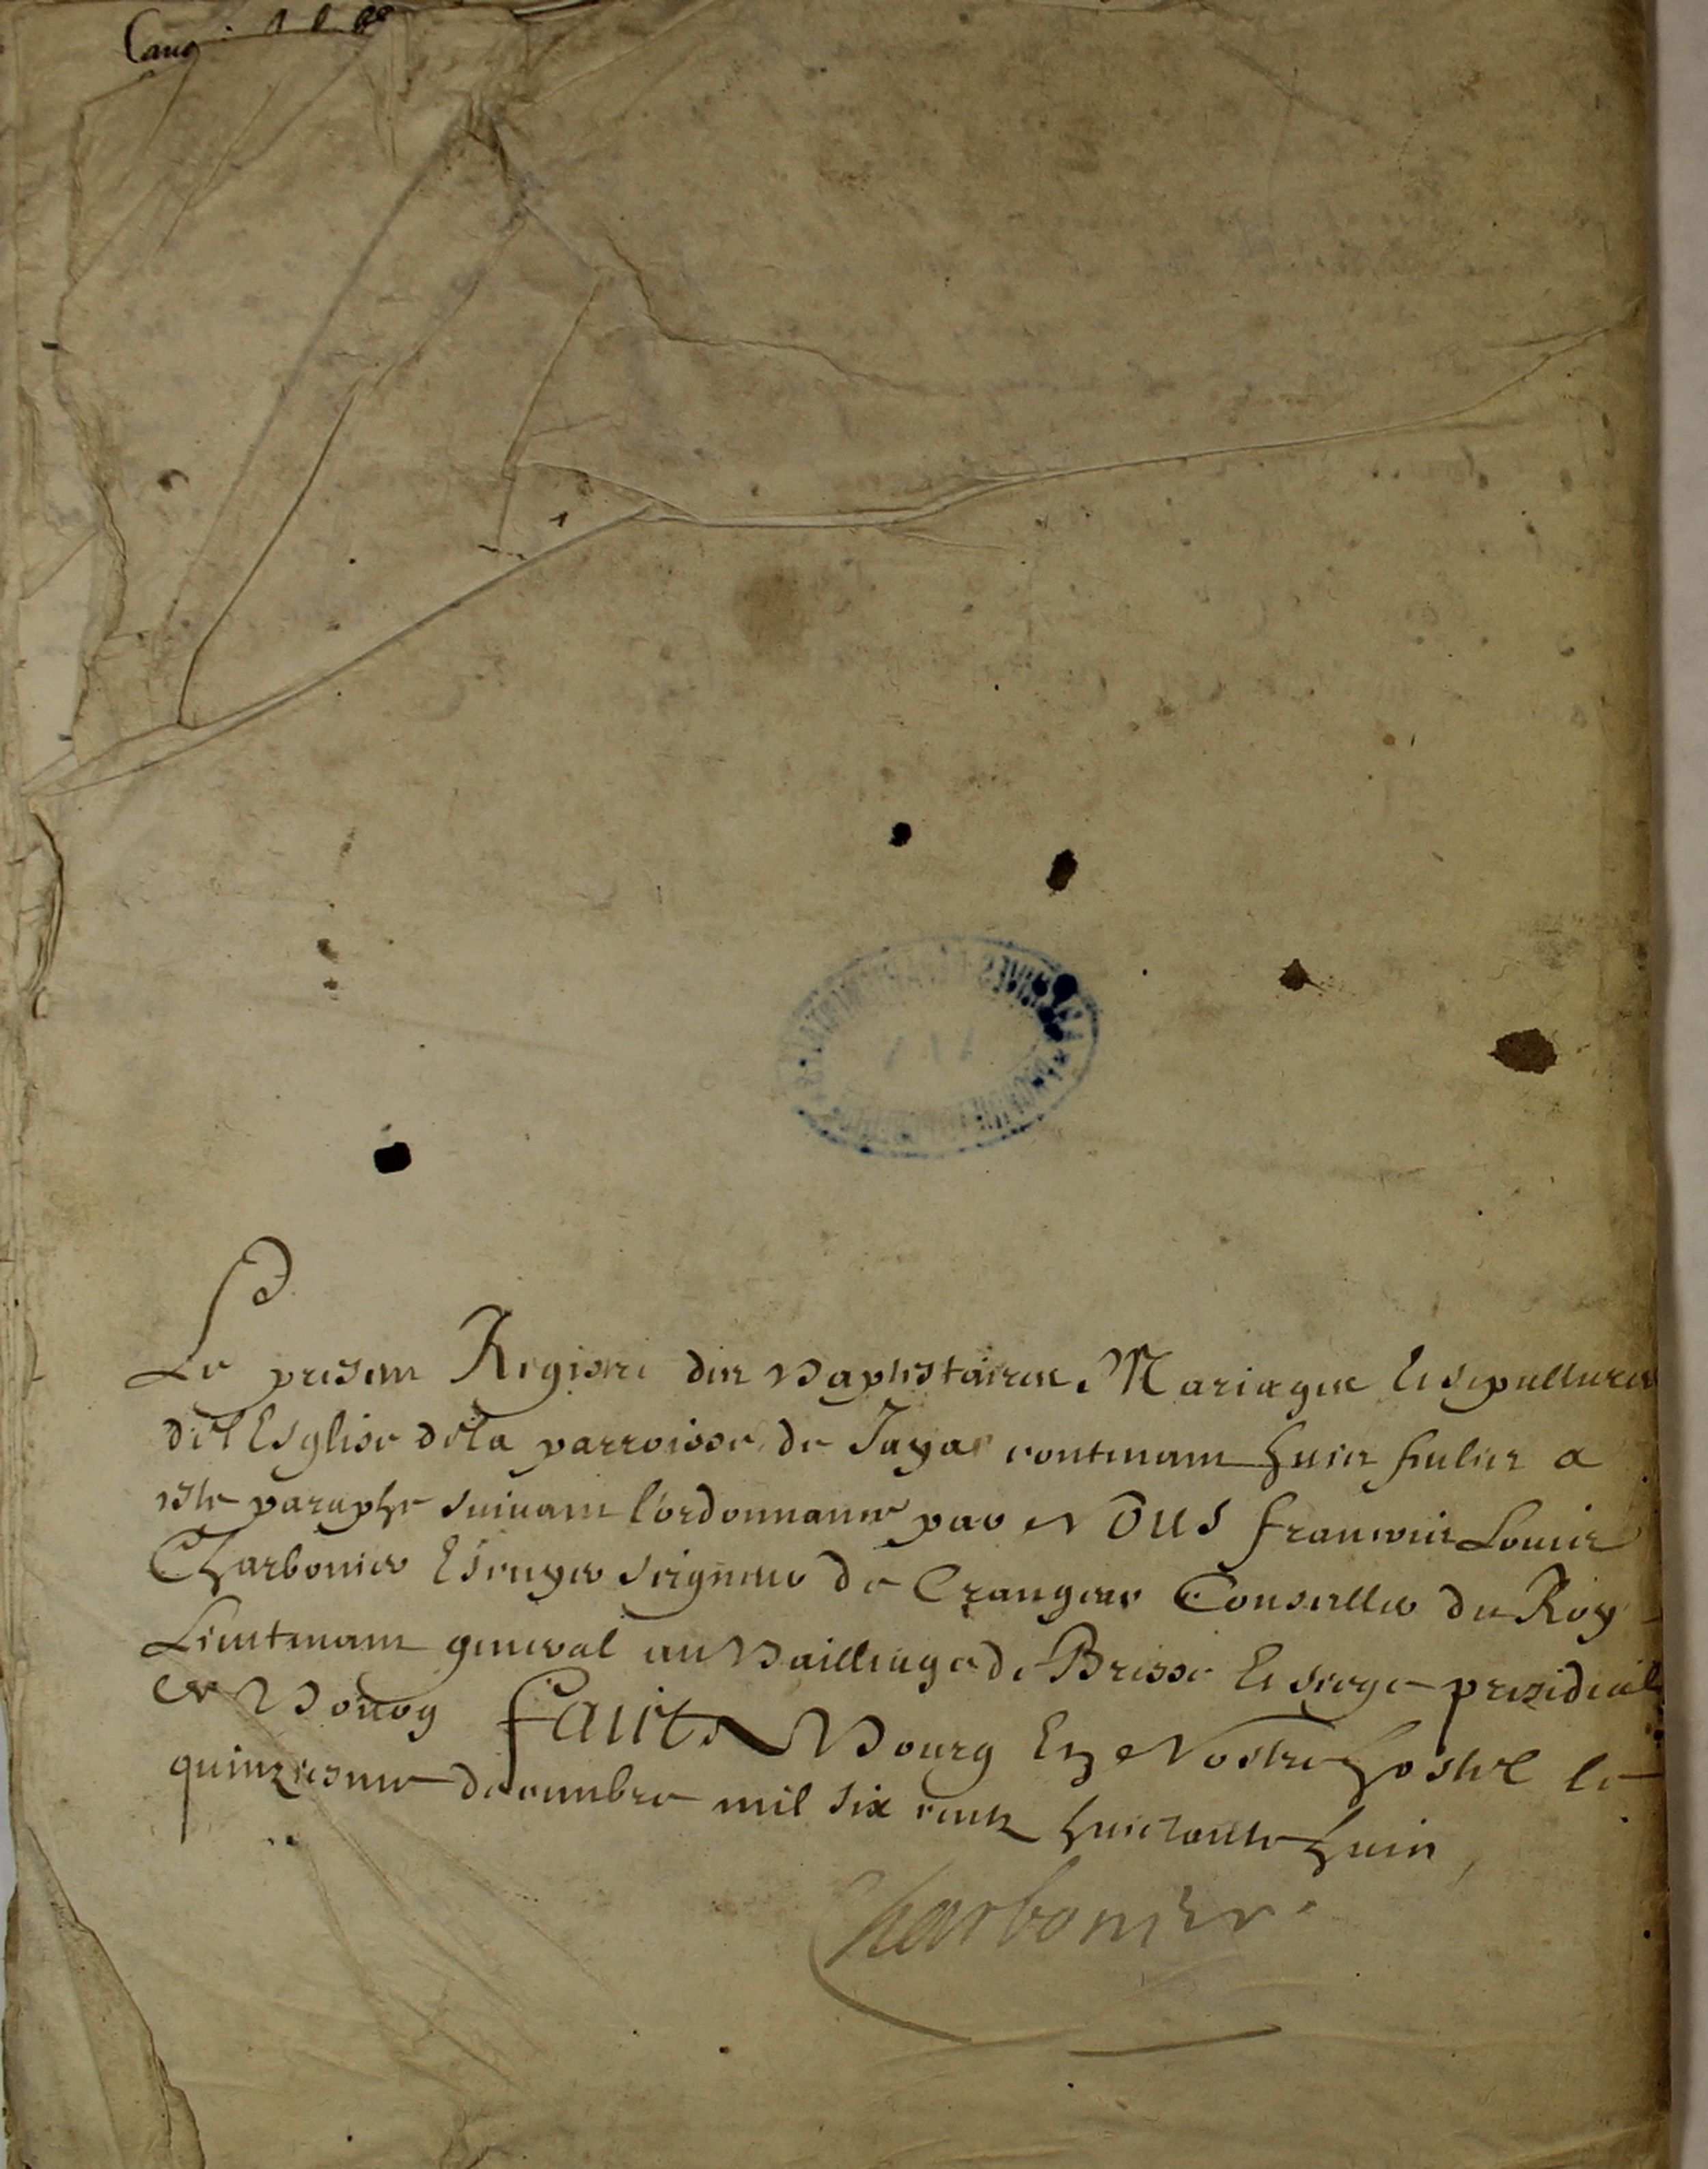 Le present Registre des Baptistaires Mariages Et sepultures
de l'Esglise de la parroisse de Jayat contenant huict feulies a
este paraphe suivant l'ordonnance par Nous francois Louis
Charbonier Escuyer seigneur de Crangeac Conseiller du Roy
Lieutenant general au Bailliage de Bresse Et siege presidial
de Bourg faict a Bourg En Nostre hostel le
quinziesme decembre mil six cents huictante huict
Charbonier